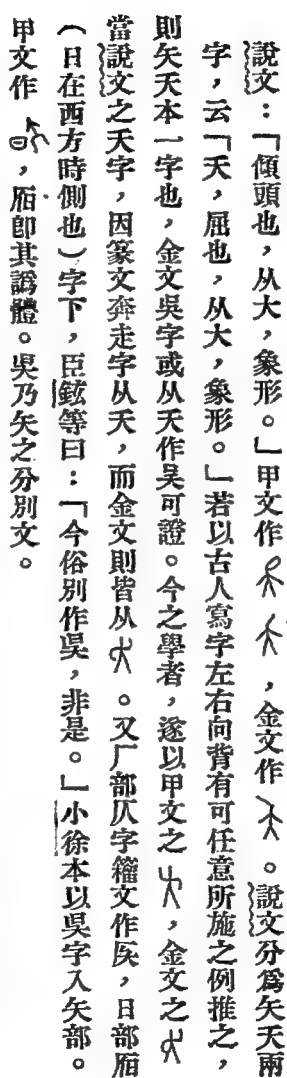 說文：「傾頭也，从大，象形。」甲文作，金文作。說文分爲夨夭兩
字，云「夭，屈也，从大，象形。」若以古人寫字左右向背有可任意所施之例推之，
則夨夭本一字也，金文吳字或从夭作吴可證。今之學者，遂以甲文之，金文之
當說文之夭字，因篆文奔走字从夭，而金文則皆从。又厂部仄字籀文作，日部
（日在西方時側也）字下，臣鉉等曰：「今俗別作昗，非是。」小徐本以昗字入夨部。
甲文作，即其譌體。昗乃夨之分別文。